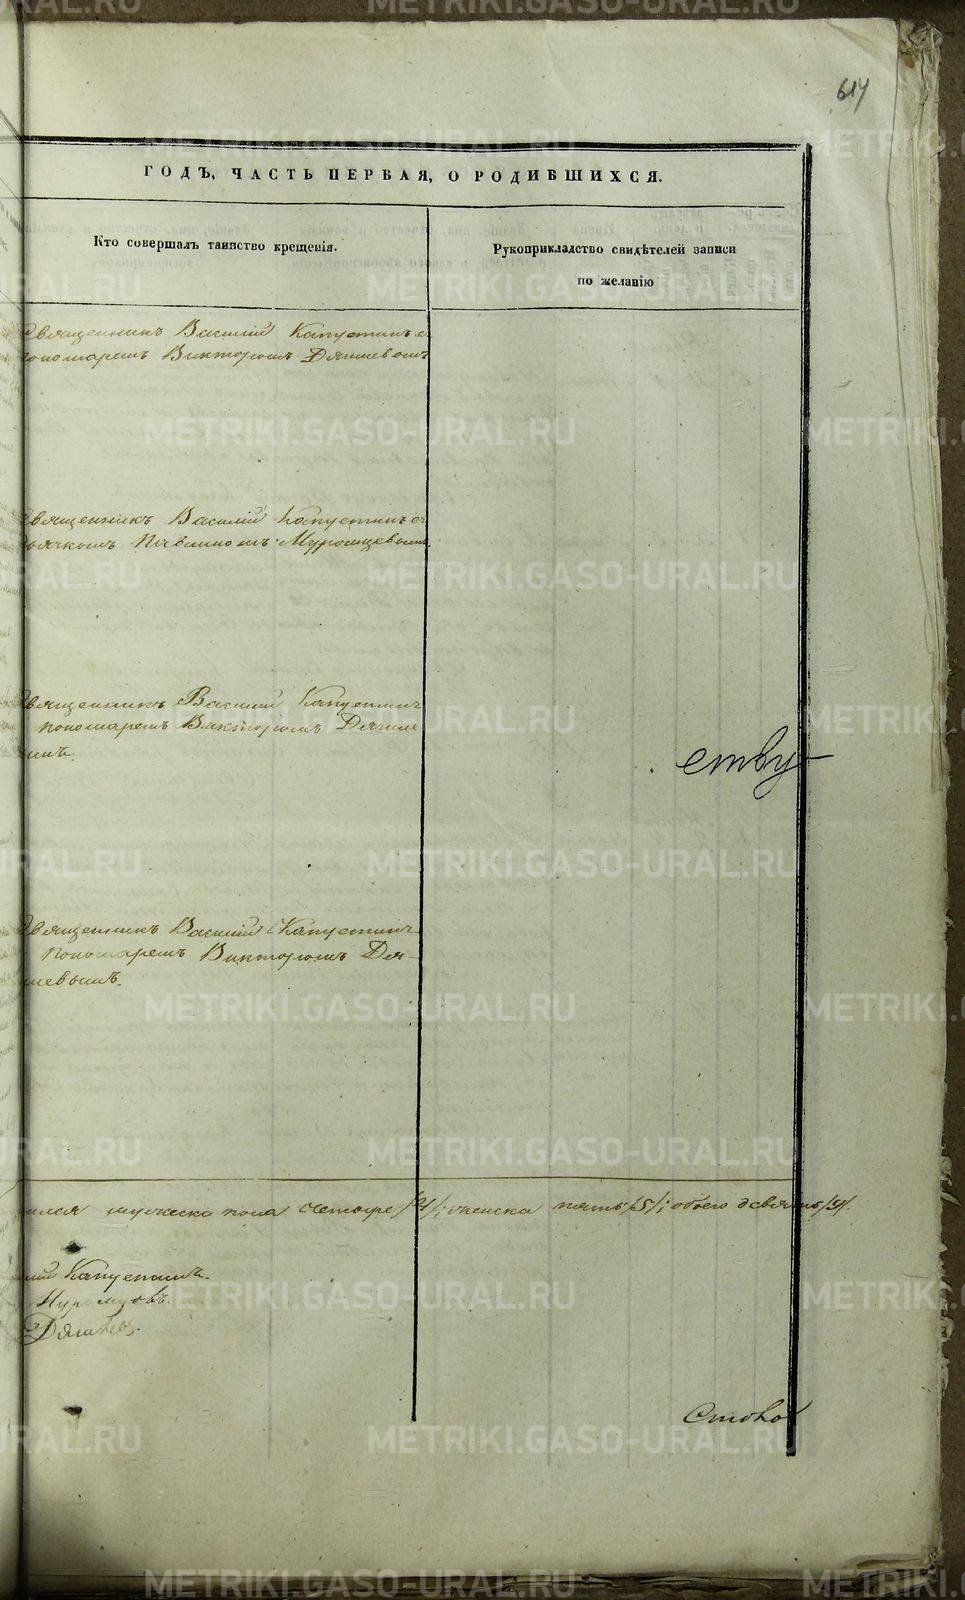 617
ГОДЪ, ЧАСТЬ ПЕРВАЯ, О РОДИВШИХСЯ.
Кто совершалъ таинство крещенія.
Рукоприкладство свидѣтелей записи
по желанію
Священникъ Василій Капустинъ с
пономаремъ Викторомъ
Священникъ Василій Капустинъ с
дьячкомъ Павлиномъ Муромцевымъ
Священникъ Василій Капустинъ
пономаремъ Викторомъ
ству
Священникъ Василій Капустинъ
пономаремъ Викторомъ
мужеска пола четыре /4/; женска пять /5/; обоего девять /9/.
Капустинъ
METRIKI.GASO-URAL.RU